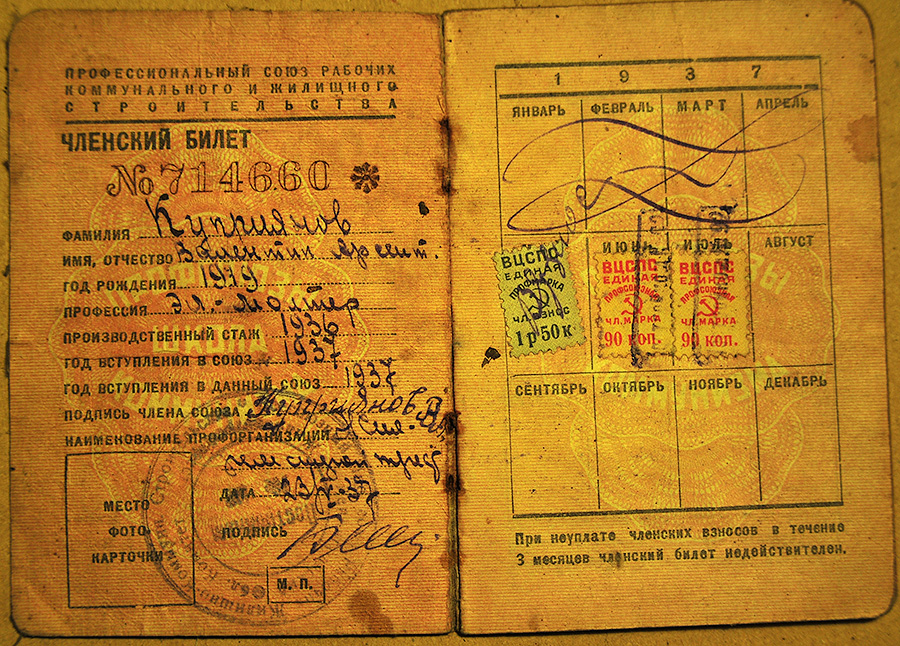 ПРОФЕССИОНАЛЬНЫЙ СОЮЗ РАБОЧИХ
КОММУНАЛЬНОГО И ЖИЛИЩНОГО
СТРОИТЕЛЬСТВА
ЧЛЕНСКИЙ БИЛЕТ
№ 714660
ФАМИЛИЯ Куприянов
ИМЯ, ОТЧЕСТВО Валентин Арсент.
ГОД РОЖДЕНИЯ 1919
ПРОФЕССИЯ эл.-монтер
ПРОИЗВОДСТВЕННЫЙ СТАЖ 1936
ГОД ВСТУПЛЕНИЯ В СОЮЗ 1937
ГОД ВСТУПЛЕНИЯ В ДАННЫЙ СОЮЗ 1937
ПОДПИСЬ ЧЛЕНА СОЮЗА Куприянов В
НАИМЕНОВАНИЕ ПРОФОРГАНИЗАЦИИ
ДАТА 23/V-37
МЕСТО
ФОТО-
КАРТОЧКИ
ПОДПИСЬ
М. П.
1937
ЯНВАРЬ ФЕВРАЛЬ МАРТ АПРЕЛЬ
ИЮНЬ ИЮЛЬ АВГУСТ
ВЦСПС
ЕДИНАЯ
ПРОФМАРКА
ЧЛ. ВЗНОС
1 р 50 к
ВЦСПС
ЕДИНАЯ
ПРОФСОЮЗНАЯ
ЧЛ. МАРКА
90 коп.
ВЦСПС
ЕДИНАЯ
ПРОФСОЮЗНАЯ
ЧЛ. МАРКА
90 коп.
СЕНТЯБРЬ ОКТЯБРЬ НОЯБРЬ ДЕКАБРЬ
При неуплате членских взносов в течение
3 месяцев членский билет недействителен.